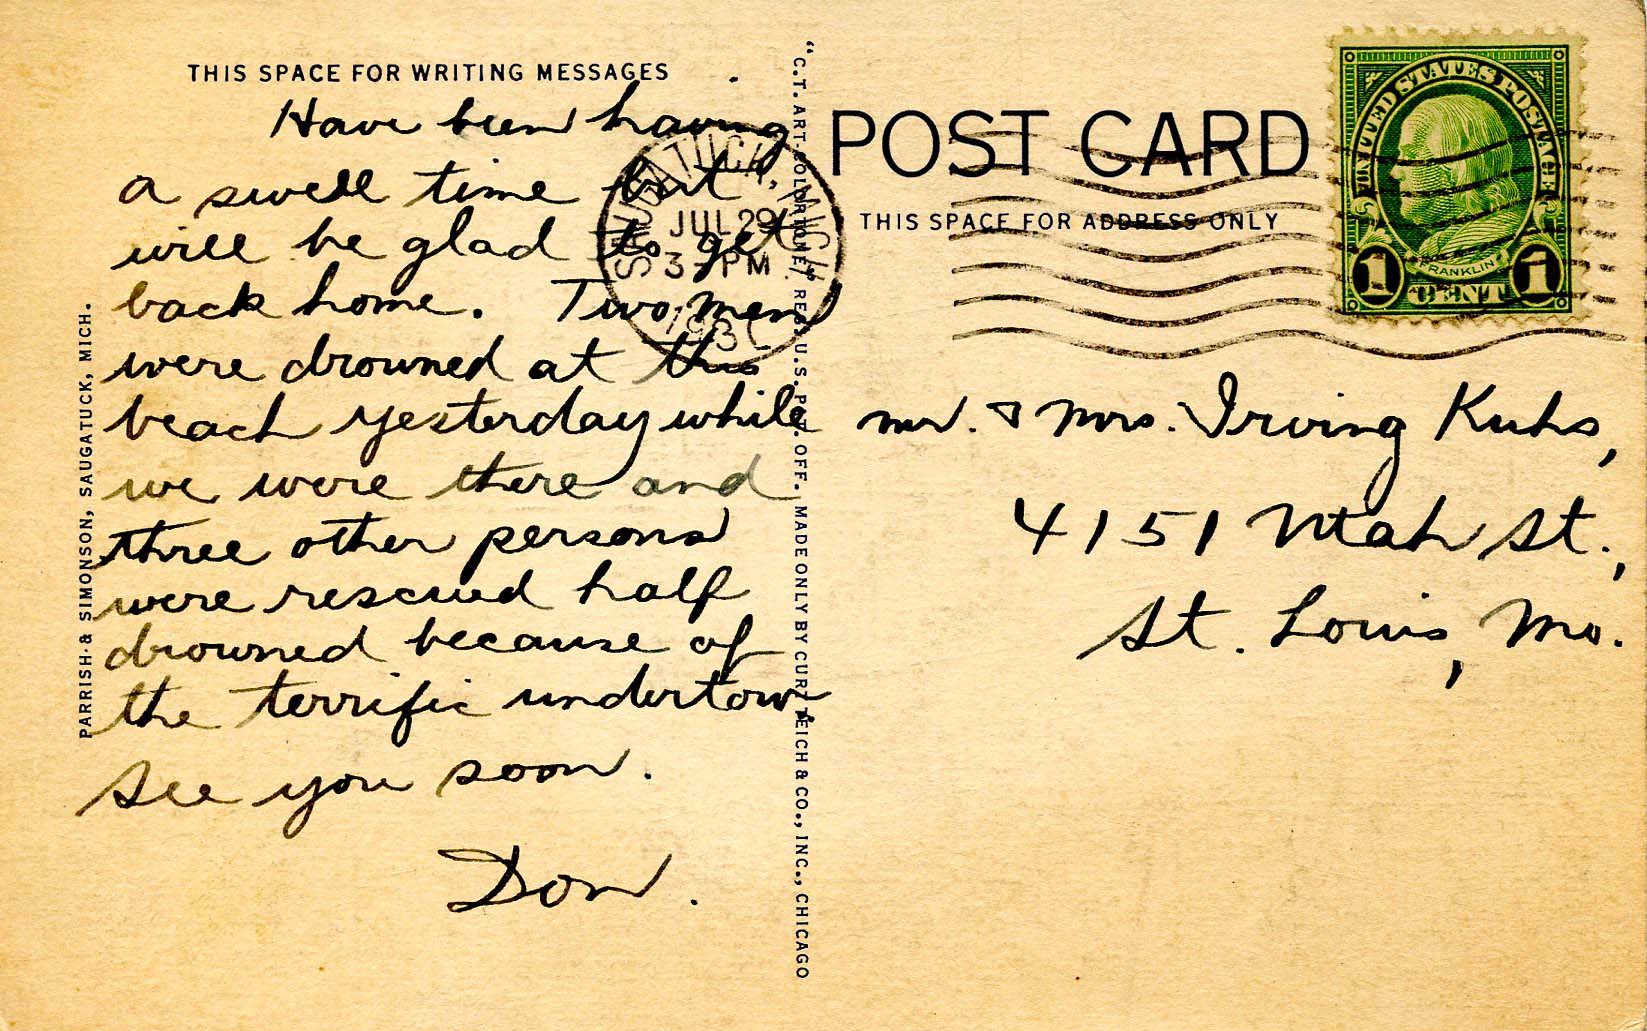 THIS SPACE FOR WRITING MESSAGES
Have been having
a swell time but
will be glad to get
back home. Two men
were drowned at this
beach yesterday while
we were there and
three other persons
were rescued half
drowned because of
the terrific undertow.
See you soon.
Don.
PARRISH & SIMONSON, SAUGATUCK, MICH.
"C.T. ART-COLORTONE" REG. U.S. PAT. OFF. MADE ONLY BY CURT TEICH & CO., INC., CHICAGO
SAUGATUCK, MICH.
JUL 29
3 PM
POST CARD
THIS SPACE FOR ADDRESS ONLY
UNITED STATES POSTAGE
FRANKLIN
1 CENT 1
Mr. & Mrs. Irving Kuhs,
4151 Utah St.,
St. Louis, Mo.